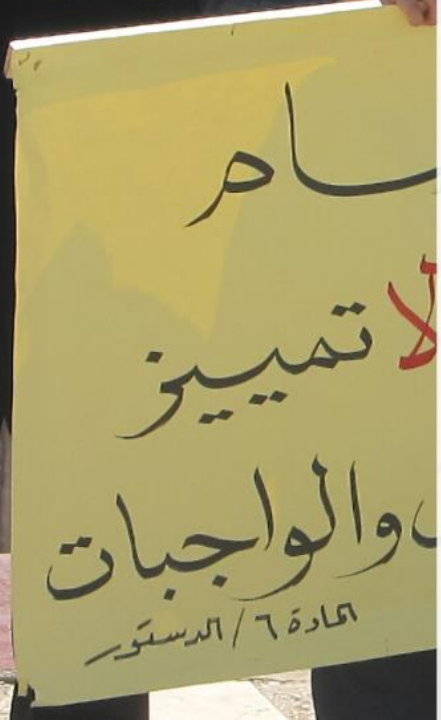 لا تمييز
والواجبات
المادة ٦ / الدستور